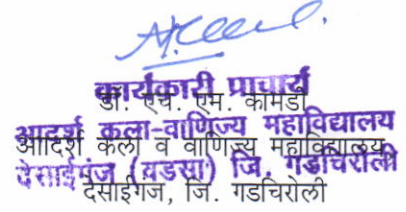 कार्यकारी प्राचार्य
डॉ. एच. एम. कामडी
आदर्श कला-वाणिज्य महाविद्यालय
आदर्श कला व वाणिज्य महाविद्यालय
देसाईगंज (वडसा) जि. गडचिरोली
देसाईगंज, जि. गडचिरोली